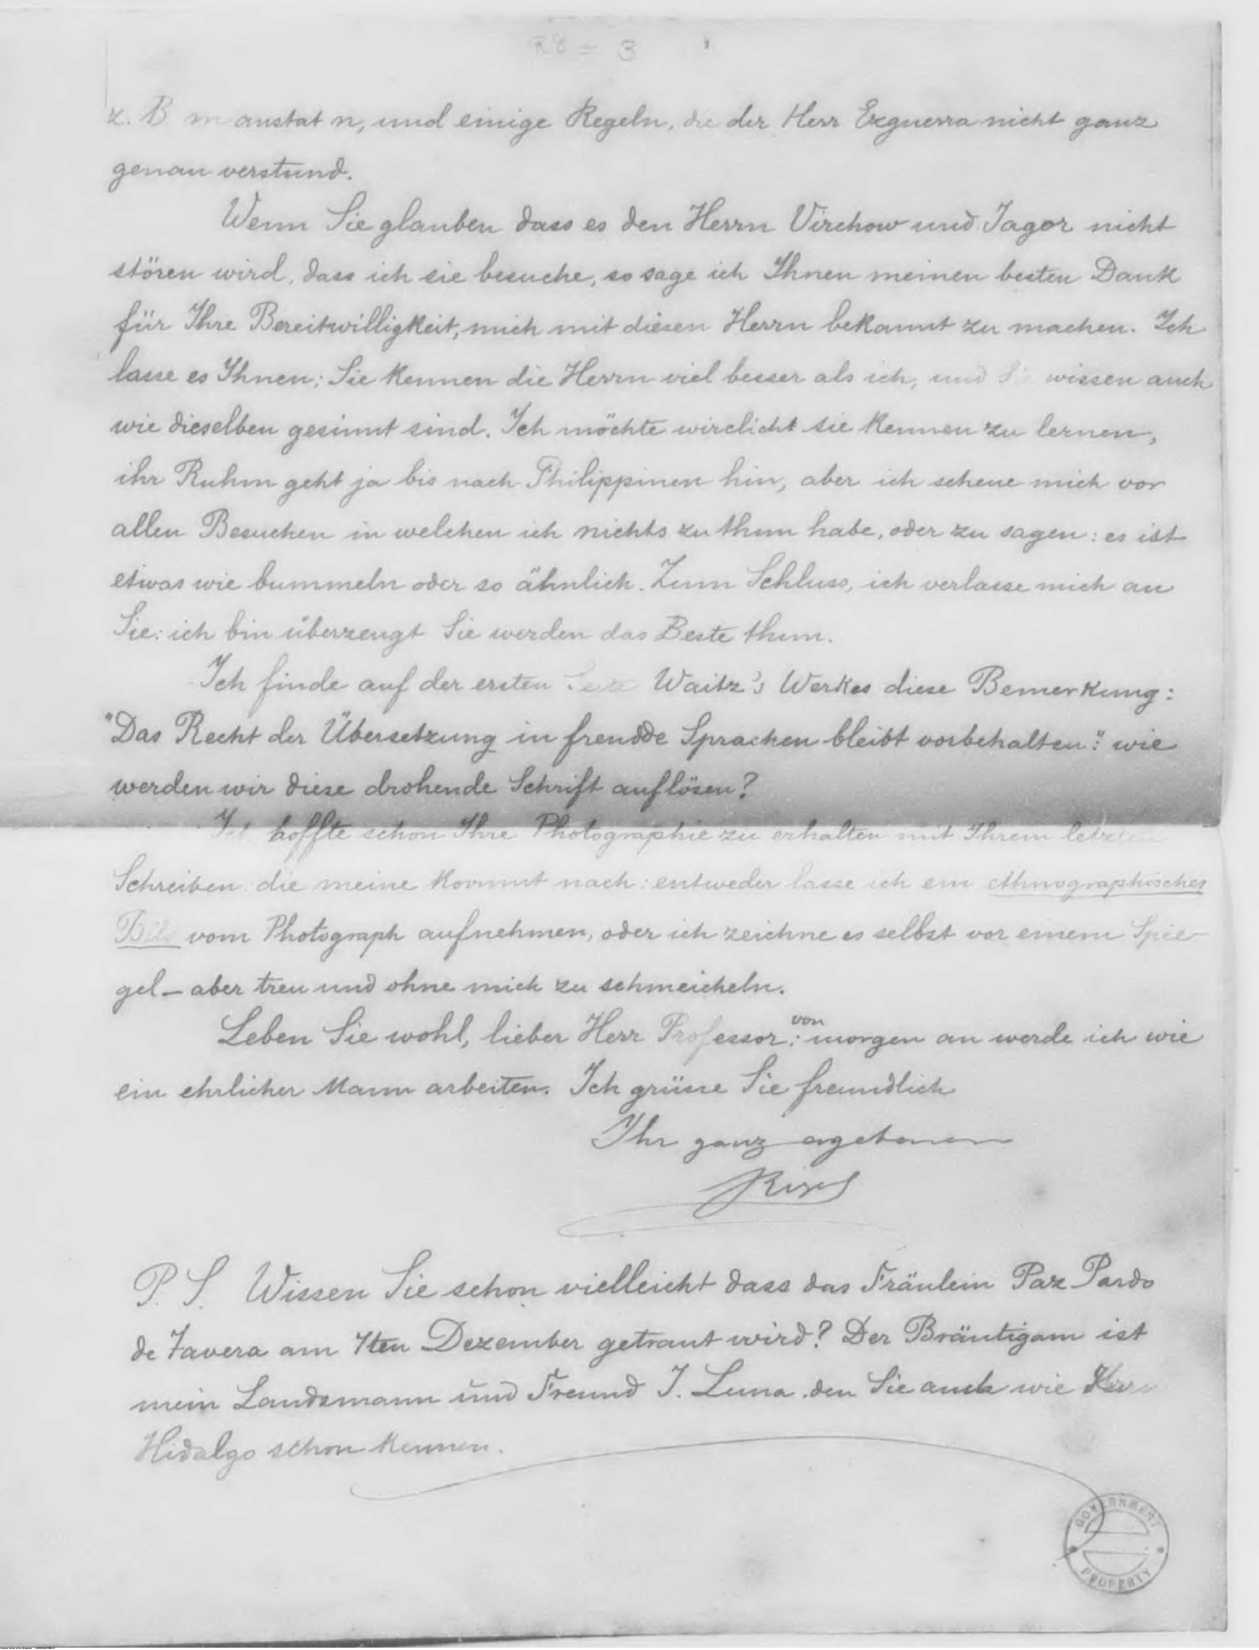 z. B m anstat n, und einige Regeln, die der Herr Ezguerra nicht ganz
genau verstund.
Wenn Sie glauben dass es den Herrn Virchow und Jagor nicht
stören wird, dass ich sie besuche, so sage ich Ihnen meinen besten Dank
für Ihre Bereitwilligkeit, mich mit diesen Herrn bekannt zu machen. Ich
lasse es Ihnen; Sie kennen die Herrn viel besser als ich, und Sie wissen auch
wie dieselben gesinnt sind. Ich möchte wirclicht sie kennen zu lernen,
ihr Ruhm geht ja bis nach Philippinen hin, aber ich scheue mich vor
allen Besuchen in welchen ich nichts zu thun habe, oder zu sagen: es ist
etwas wie bummeln oder so ähnlich. Zum Schluss, ich verlasse mich an
Sie: ich bin überzeugt Sie werden das Beste thun.
Ich finde auf der ersten Seite Waitz's Werkes diese Bemerkung:
"Das Recht der Übersetzung in fremde Sprachen bleibt vorbehalten": wie
werden wir diese drohende Schrift auflösen?
Ich hoffte schon Ihre Photographie zu erhalten mit Ihrem letzten
Schreiben: die meine kommt nach: entweder lasse ich ein ethnographisches
Bild vom Photograph aufnehmen, oder ich zeichne es selbst vor einem Spie-
gel – aber treu und ohne mich zu schmeicheln.
Leben Sie wohl, lieber Herr Professor: von morgen an werde ich wie
ein ehrlicher Mann arbeiten. Ich grüsse Sie freundlich
Ihr ganz ergebenen
Rizal
P. S. Wissen Sie schon vielleicht dass das Fräulein Paz Pardo
de Tavera am 7ten Dezember getraut wird? Der Bräutigam ist
mein Landsmann und Freund J. Luna, den Sie auch wie Herrn
Hidalgo schon kennen.
GOVERNMENT
PROPERTY